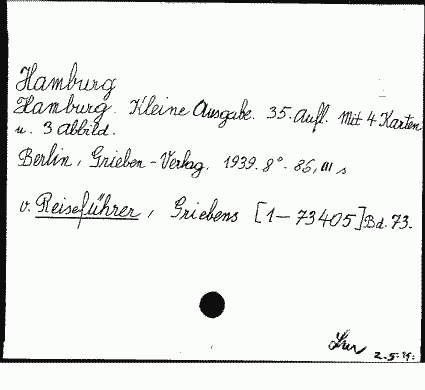 Hamburg
Hamburg. Kleine Ausgabe. 35. Aufl. Mit 4 Karten
u. 3 Abbild.
Berlin, Grieben-Verlag, 1939. 8°. 86, III s
v. Reiseführer, Griebens [1-73405] Bd. 73.
2.5.